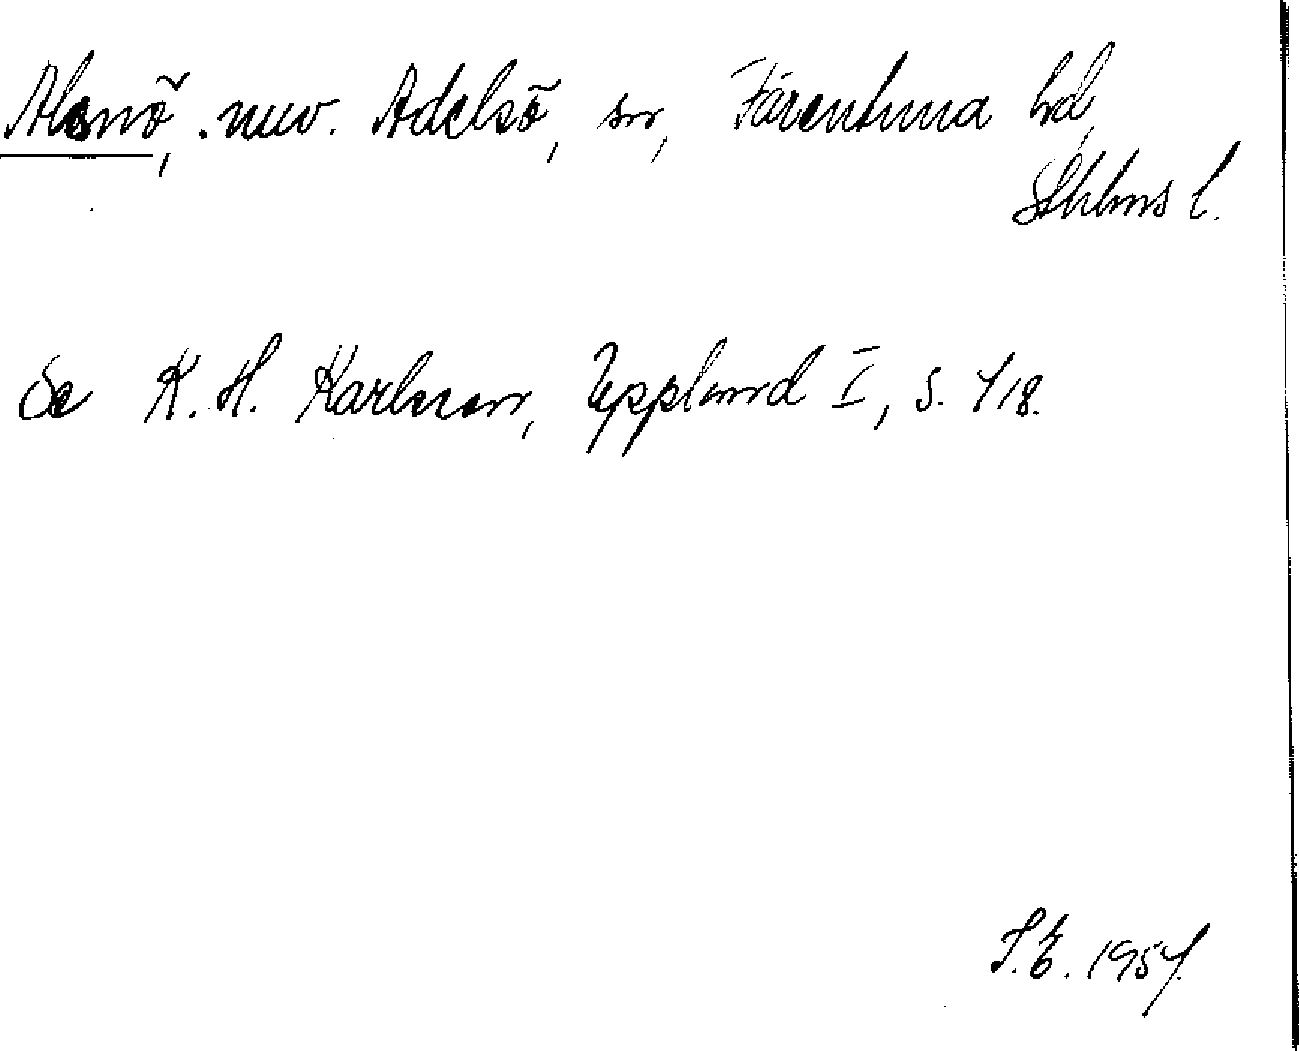 Alsnö, nuv. Adelsö, sn, Färentuna hd,
Sthlms l.
Se K. H. Karlsson, Uppland I, s. 718.
S.E. 1957.